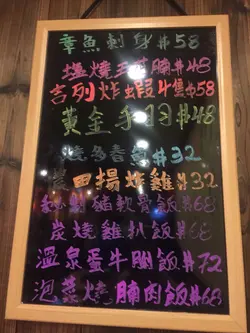 章魚刺身#58
塩燒玉子腩#48
吉列炸蝦4隻#58
黃金手羽#48
燒多春魚#32
田揚炸雞#32
軟骨飯#68
炭燒雞扒飯#68
溫泉蛋牛胸飯#72
泡菜燒腩肉飯#68